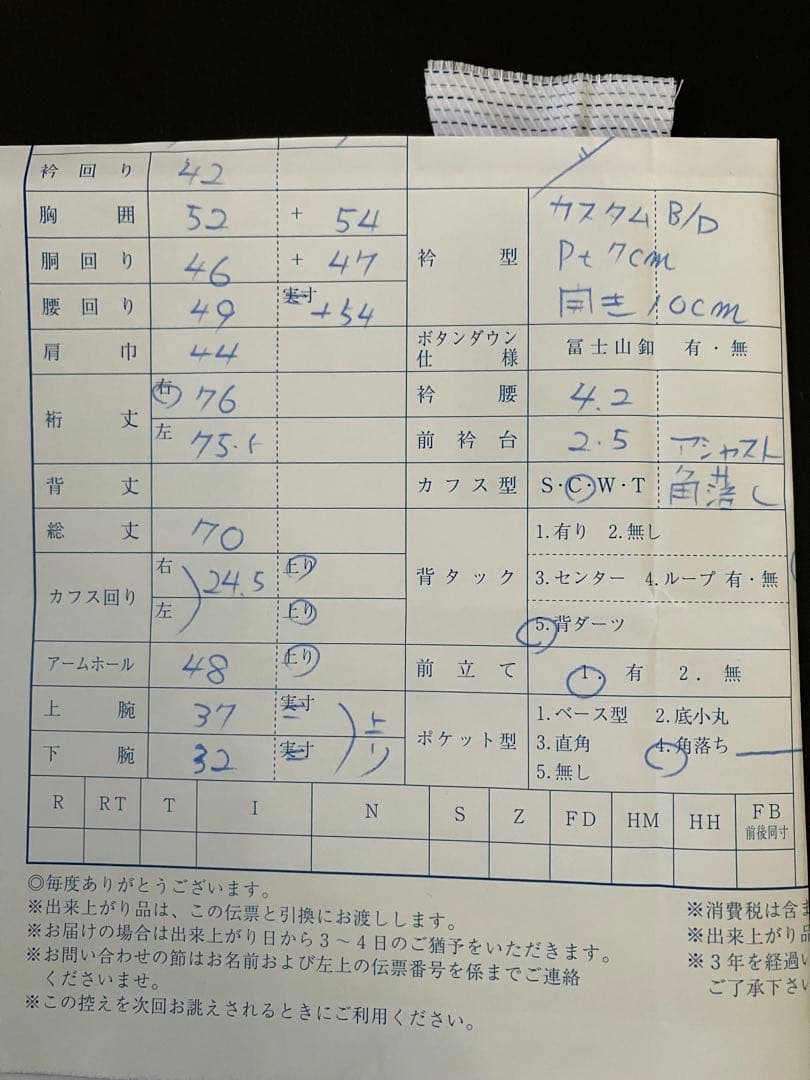 衿回り 42
胸囲 52 + 54
胴回り 46 + 47
腰回り 49 実寸 +54
肩巾 44
裄丈 右 76
左 75.5
背丈
総丈 70
カフス回り 右 24.5 上り
左 上り
アームホール 48 上り
上腕 37 実寸 上り
下腕 32 実寸
衿型 カスタム B/D
Pt 7cm
開き 10cm
ボタンダウン仕様 冨士山釦 有・無
衿腰 4.2
前衿台 2.5 アジャスト
カフス型 S・C・W・T 角落し
背タック 1.有り 2.無し
3.センター 4.ループ 有・無
5.背ダーツ
前立て 1. 有 2. 無
ポケット型 1.ベース型 2.底小丸
3.直角 4.角落ち
5.無し
R RT T I N S Z FD HM HH FB
前後同寸
◎毎度ありがとうございます。
※出来上がり品は、この伝票と引換にお渡しします。
※お届けの場合は出来上がり日から3～4日のご猶予をいただきます。
※お問い合わせの節はお名前および左上の伝票番号を係までご連絡
くださいませ。
※この控えを次回お誂えされるときにご利用ください。
※消費税は含ま
※出来上がり品
※3年を経過い
ご了承下さい